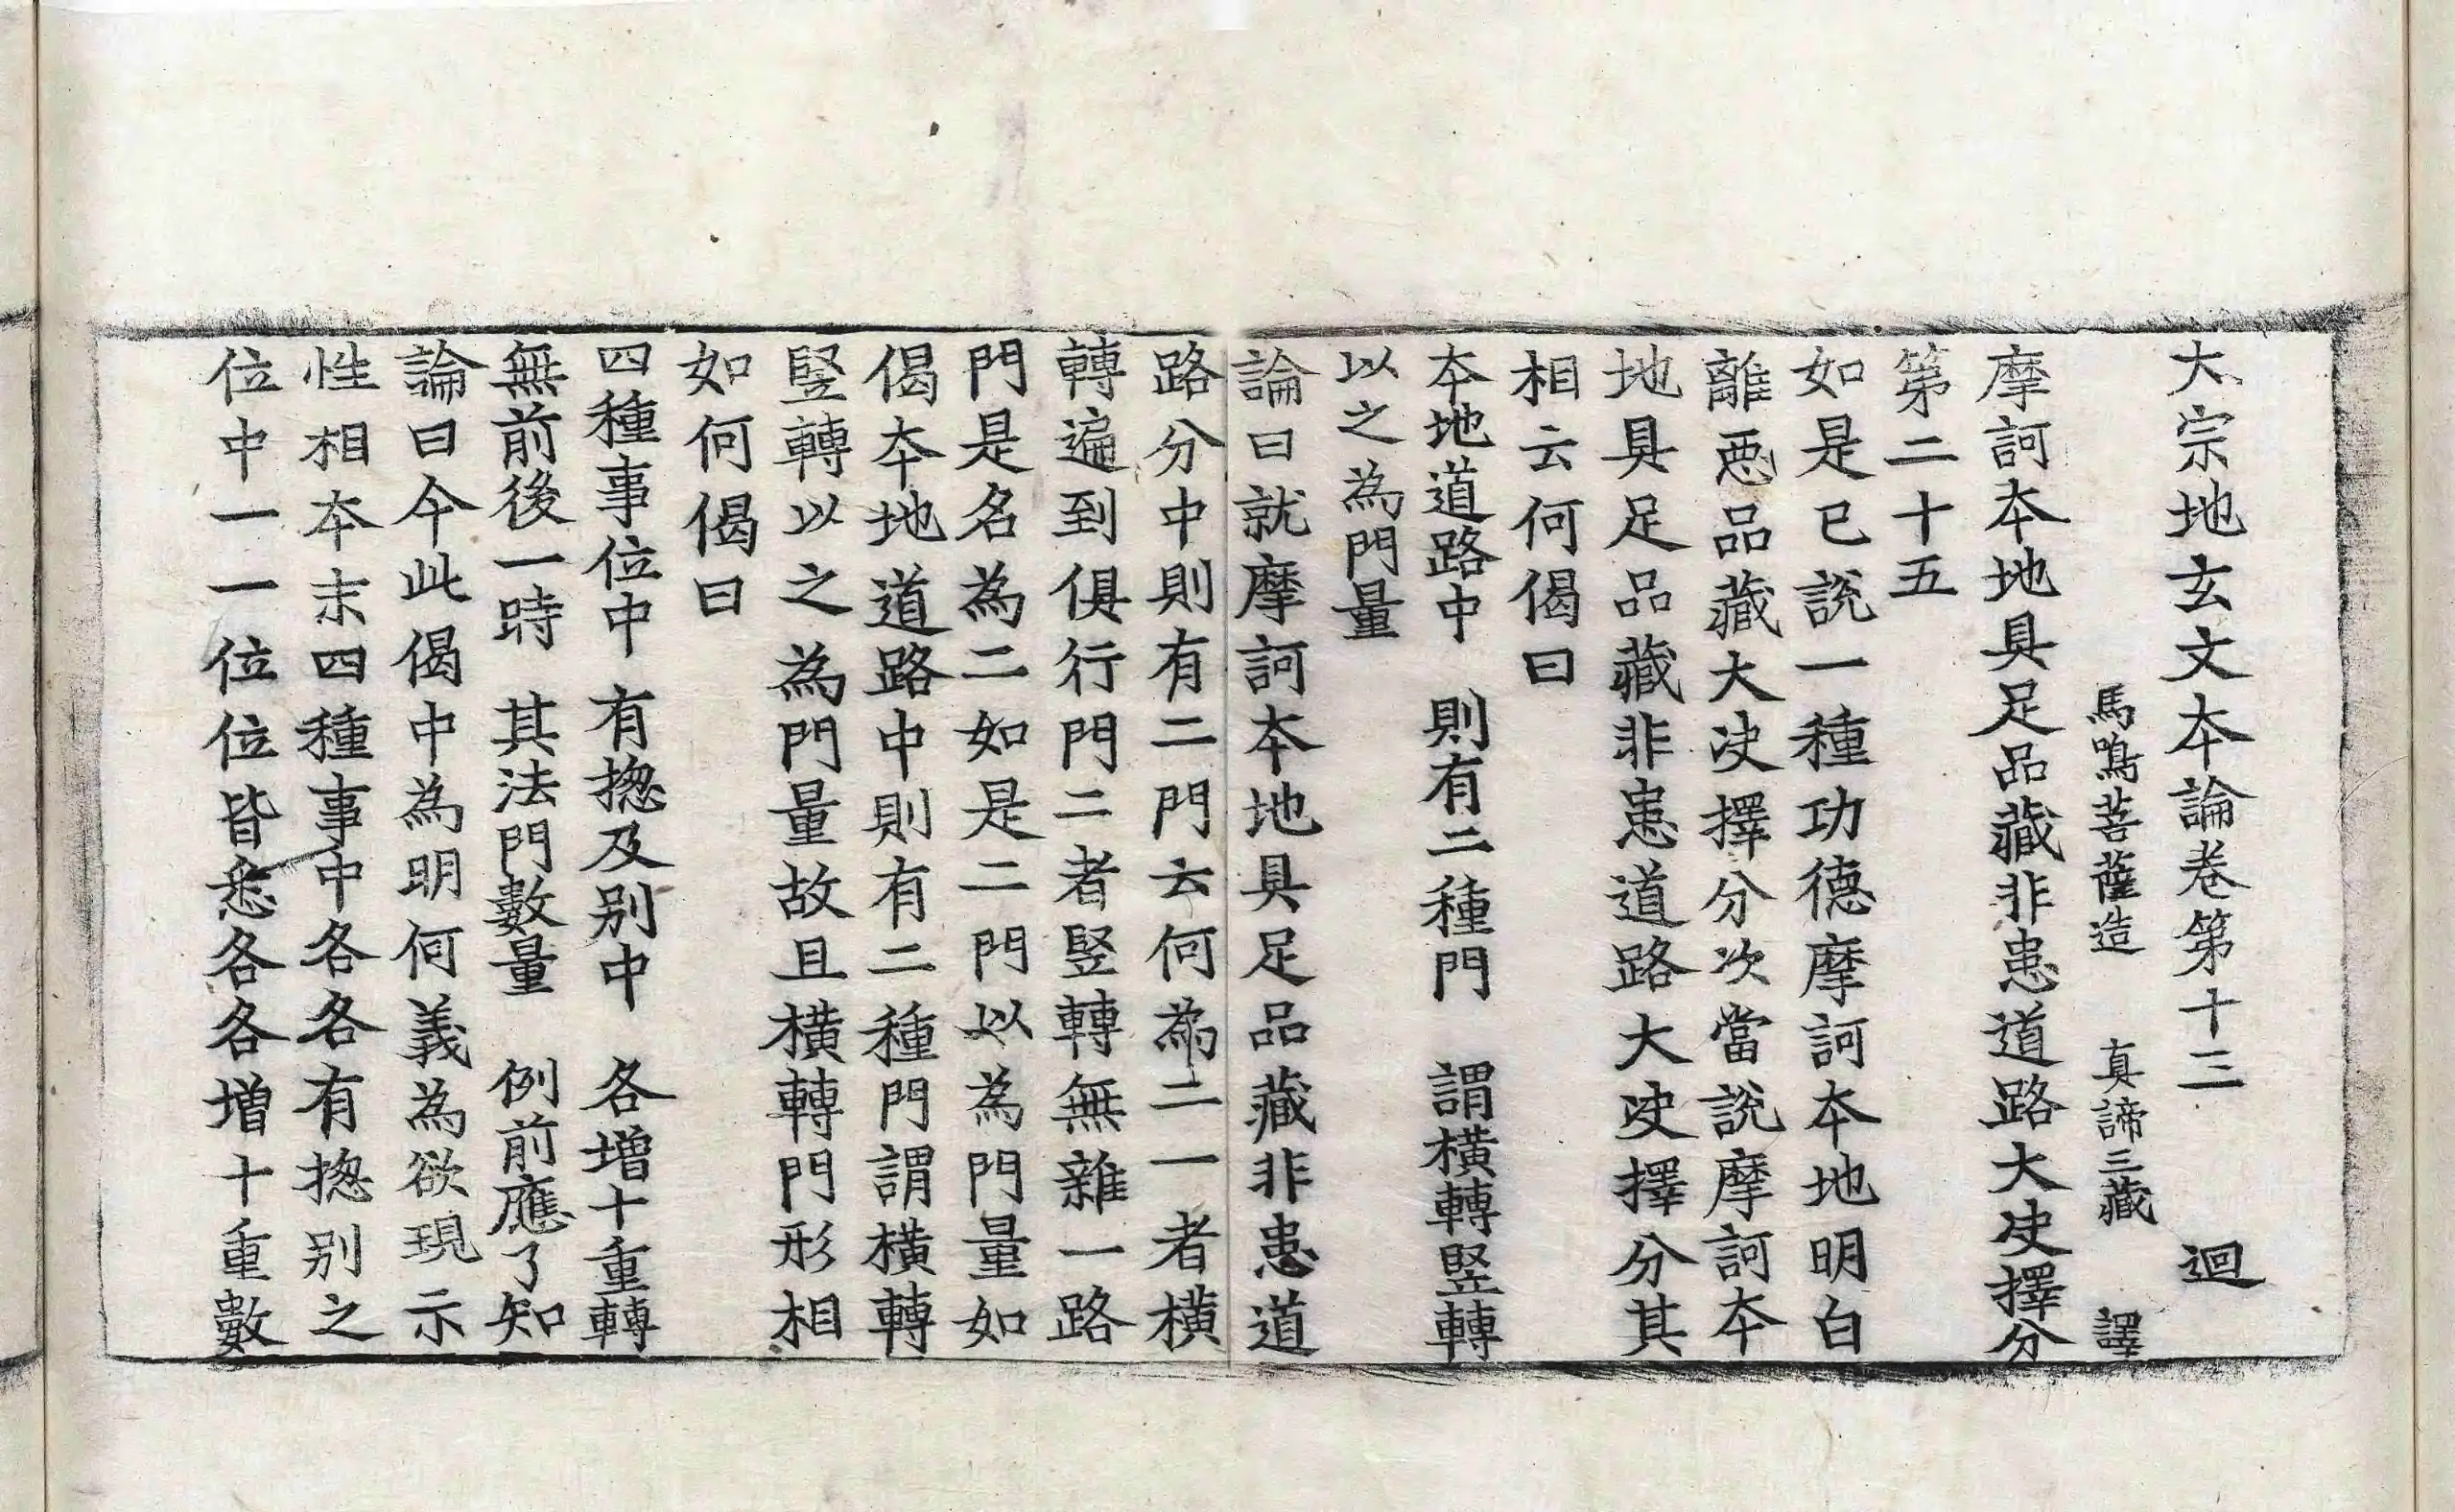 大宗地玄文本論卷第十三 迴
馬鳴菩薩造 真諦三藏 譯
摩訶本地具足品藏非患道路大决擇分
第二十五
如是已說一種功德摩訶本地明白
離惡品藏大决擇分次當說摩訶本
地具足品藏非患道路大决擇分其
相云何偈曰
本地道路中 則有二種門 謂橫轉竪轉
以之為門量
論曰就摩訶本地具足品藏非患道
路分中則有二門云何為二一者橫
轉遍到俱行門二者竪轉無雜一路
門是名為二如是二門以為門量如
偈本地道路中則有二種門謂橫轉
竪轉以之為門量故且橫轉門形相
如何偈曰
四種事位中 有揔及别中 各增十重轉
無前後一時 其法門數量 例前應了知
論曰今此偈中為明何義為欲現示
性相本末四種事中各各有揔别之
位中一一位位皆悉各各增十重數